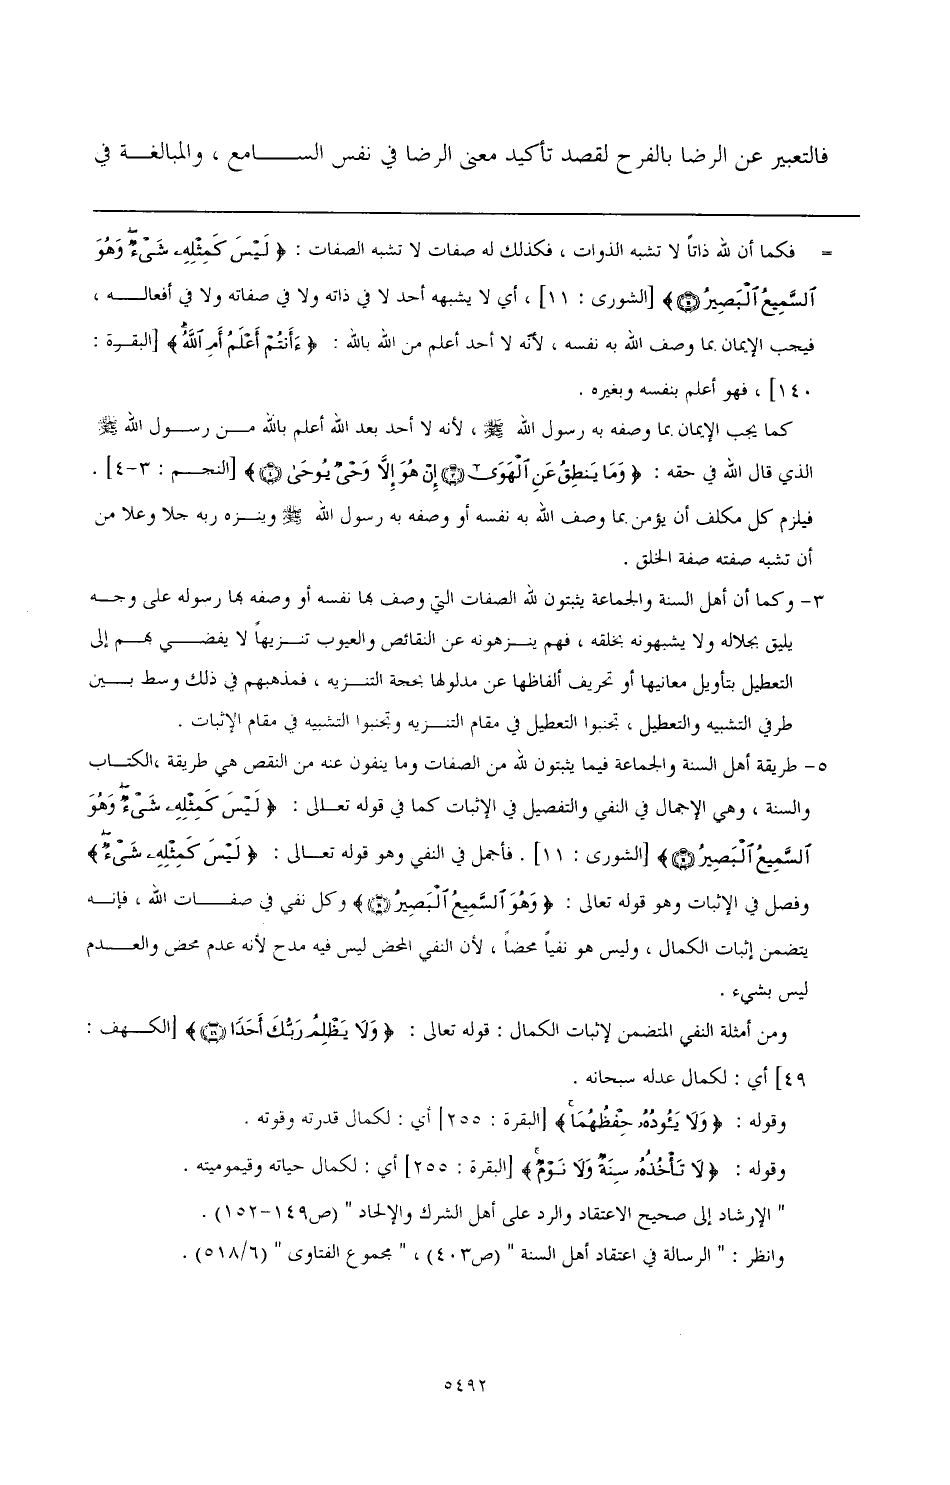 فالتعبير عن الرضا بالفرح لقصد تأكيد معنى الرضا في نفس الســـــامع ، والمبالغـــة في
= فكما أن لله ذاتاً لا تشبه الذوات ، فكذلك له صفات لا تشبه الصفات : ﴿ لَيْسَ كَمِثْلِهِۦ شَىْءٌ ۖ وَهُوَ
ٱلسَّمِيعُ ٱلْبَصِيرُ ۝ ﴾ [الشورى : ١١] ، أي لا يشبهه أحد لا في ذاته ولا في صفاته ولا في أفعالـــه ،
فيجب الإيمان بما وصف الله به نفسه ، لأنّه لا أحد أعلم من الله بالله : ﴿ ءَأَنتُمْ أَعْلَمُ أَمِ ٱللَّهُ ۗ ﴾ [البقـرة :
١٤٠] ، فهو أعلم بنفسه وبغيره .
كما يجب الإيمان بما وصفه به رسول الله ﷺ ، لأنه لا أحد بعد الله أعلم بالله مـــن رســـول الله ﷺ
الذي قال الله في حقه : ﴿ وَمَا يَنطِقُ عَنِ ٱلْهَوَىٰٓ ۝ إِنْ هُوَ إِلَّا وَحْىٌ يُوحَىٰ ۝ ﴾ [النجـــم : ٣-٤] .
فيلزم كل مكلف أن يؤمن بما وصف الله به نفسه أو وصفه به رسول الله ﷺ وينـــزه ربه جلا وعلا من
أن تشبه صفته صفة الخلق .
٣- وكما أن أهل السنة والجماعة يثبتون لله الصفات التي وصف بها نفسه أو وصفه بها رسوله على وجـــه
يليق بجلاله ولا يشبهونه بخلقه ، فهم ينـــزهونه عن النقائص والعيوب تنـــزيهاً لا يفضـــي بهـــم إلى
التعطيل بتأويل معانيها أو تحريف ألفاظها عن مدلولها بحجة التنـــزيه ، فمذهبهم في ذلك وسط بـــين
طرفي التشبيه والتعطيل ، تجنبوا التعطيل في مقام التنـــزيه وتجنبوا التشبيه في مقام الإثبات .
٥- طريقة أهل السنة والجماعة فيما يثبتون لله من الصفات وما ينفون عنه من النقص هي طريقة ،الكتـــاب
والسنة ، وهي الإجمال في النفي والتفصيل في الإثبات كما في قوله تعـــالى : ﴿ لَيْسَ كَمِثْلِهِۦ شَىْءٌ ۖ وَهُوَ
ٱلسَّمِيعُ ٱلْبَصِيرُ ۝ ﴾ [الشورى : ١١] . فأجمل في النفي وهو قوله تعـــالى : ﴿ لَيْسَ كَمِثْلِهِۦ شَىْءٌ ۖ ﴾
وفصل في الإثبات وهو قوله تعالى : ﴿ وَهُوَ ٱلسَّمِيعُ ٱلْبَصِيرُ ۝ ﴾ وكل نفي في صفـــات الله ، فإنـــه
يتضمن إثبات الكمال ، وليس هو نفياً محضاً ، لأن النفي المحض ليس فيه مدح لأنه عدم محض والعـــدم
ليس بشيء .
ومن أمثلة النفي المتضمن لإثبات الكمال : قوله تعالى : ﴿ وَلَا يَظْلِمُ رَبُّكَ أَحَدًا ۝ ﴾ [الكـــهف :
٤٩] أي : لكمال عدله سبحانه .
وقوله : ﴿ وَلَا يَـُٔودُهُۥ حِفْظُهُمَا ۚ ﴾ [البقرة : ٢٥٥] أي : لكمال قدرته وقوته .
وقوله : ﴿ لَا تَأْخُذُهُۥ سِنَةٌ وَلَا نَوْمٌ ۚ ﴾ [البقرة : ٢٥٥] أي : لكمال حياته وقيموميته .
" الإرشاد إلى صحيح الاعتقاد والرد على أهل الشرك والإلحاد " (ص١٤٩-١٥٢) .
وانظر : " الرسالة في اعتقاد أهل السنة " (ص٤٠٣) ، " مجموع الفتاوى " (٥١٨/٦) .
٥٤٩٢